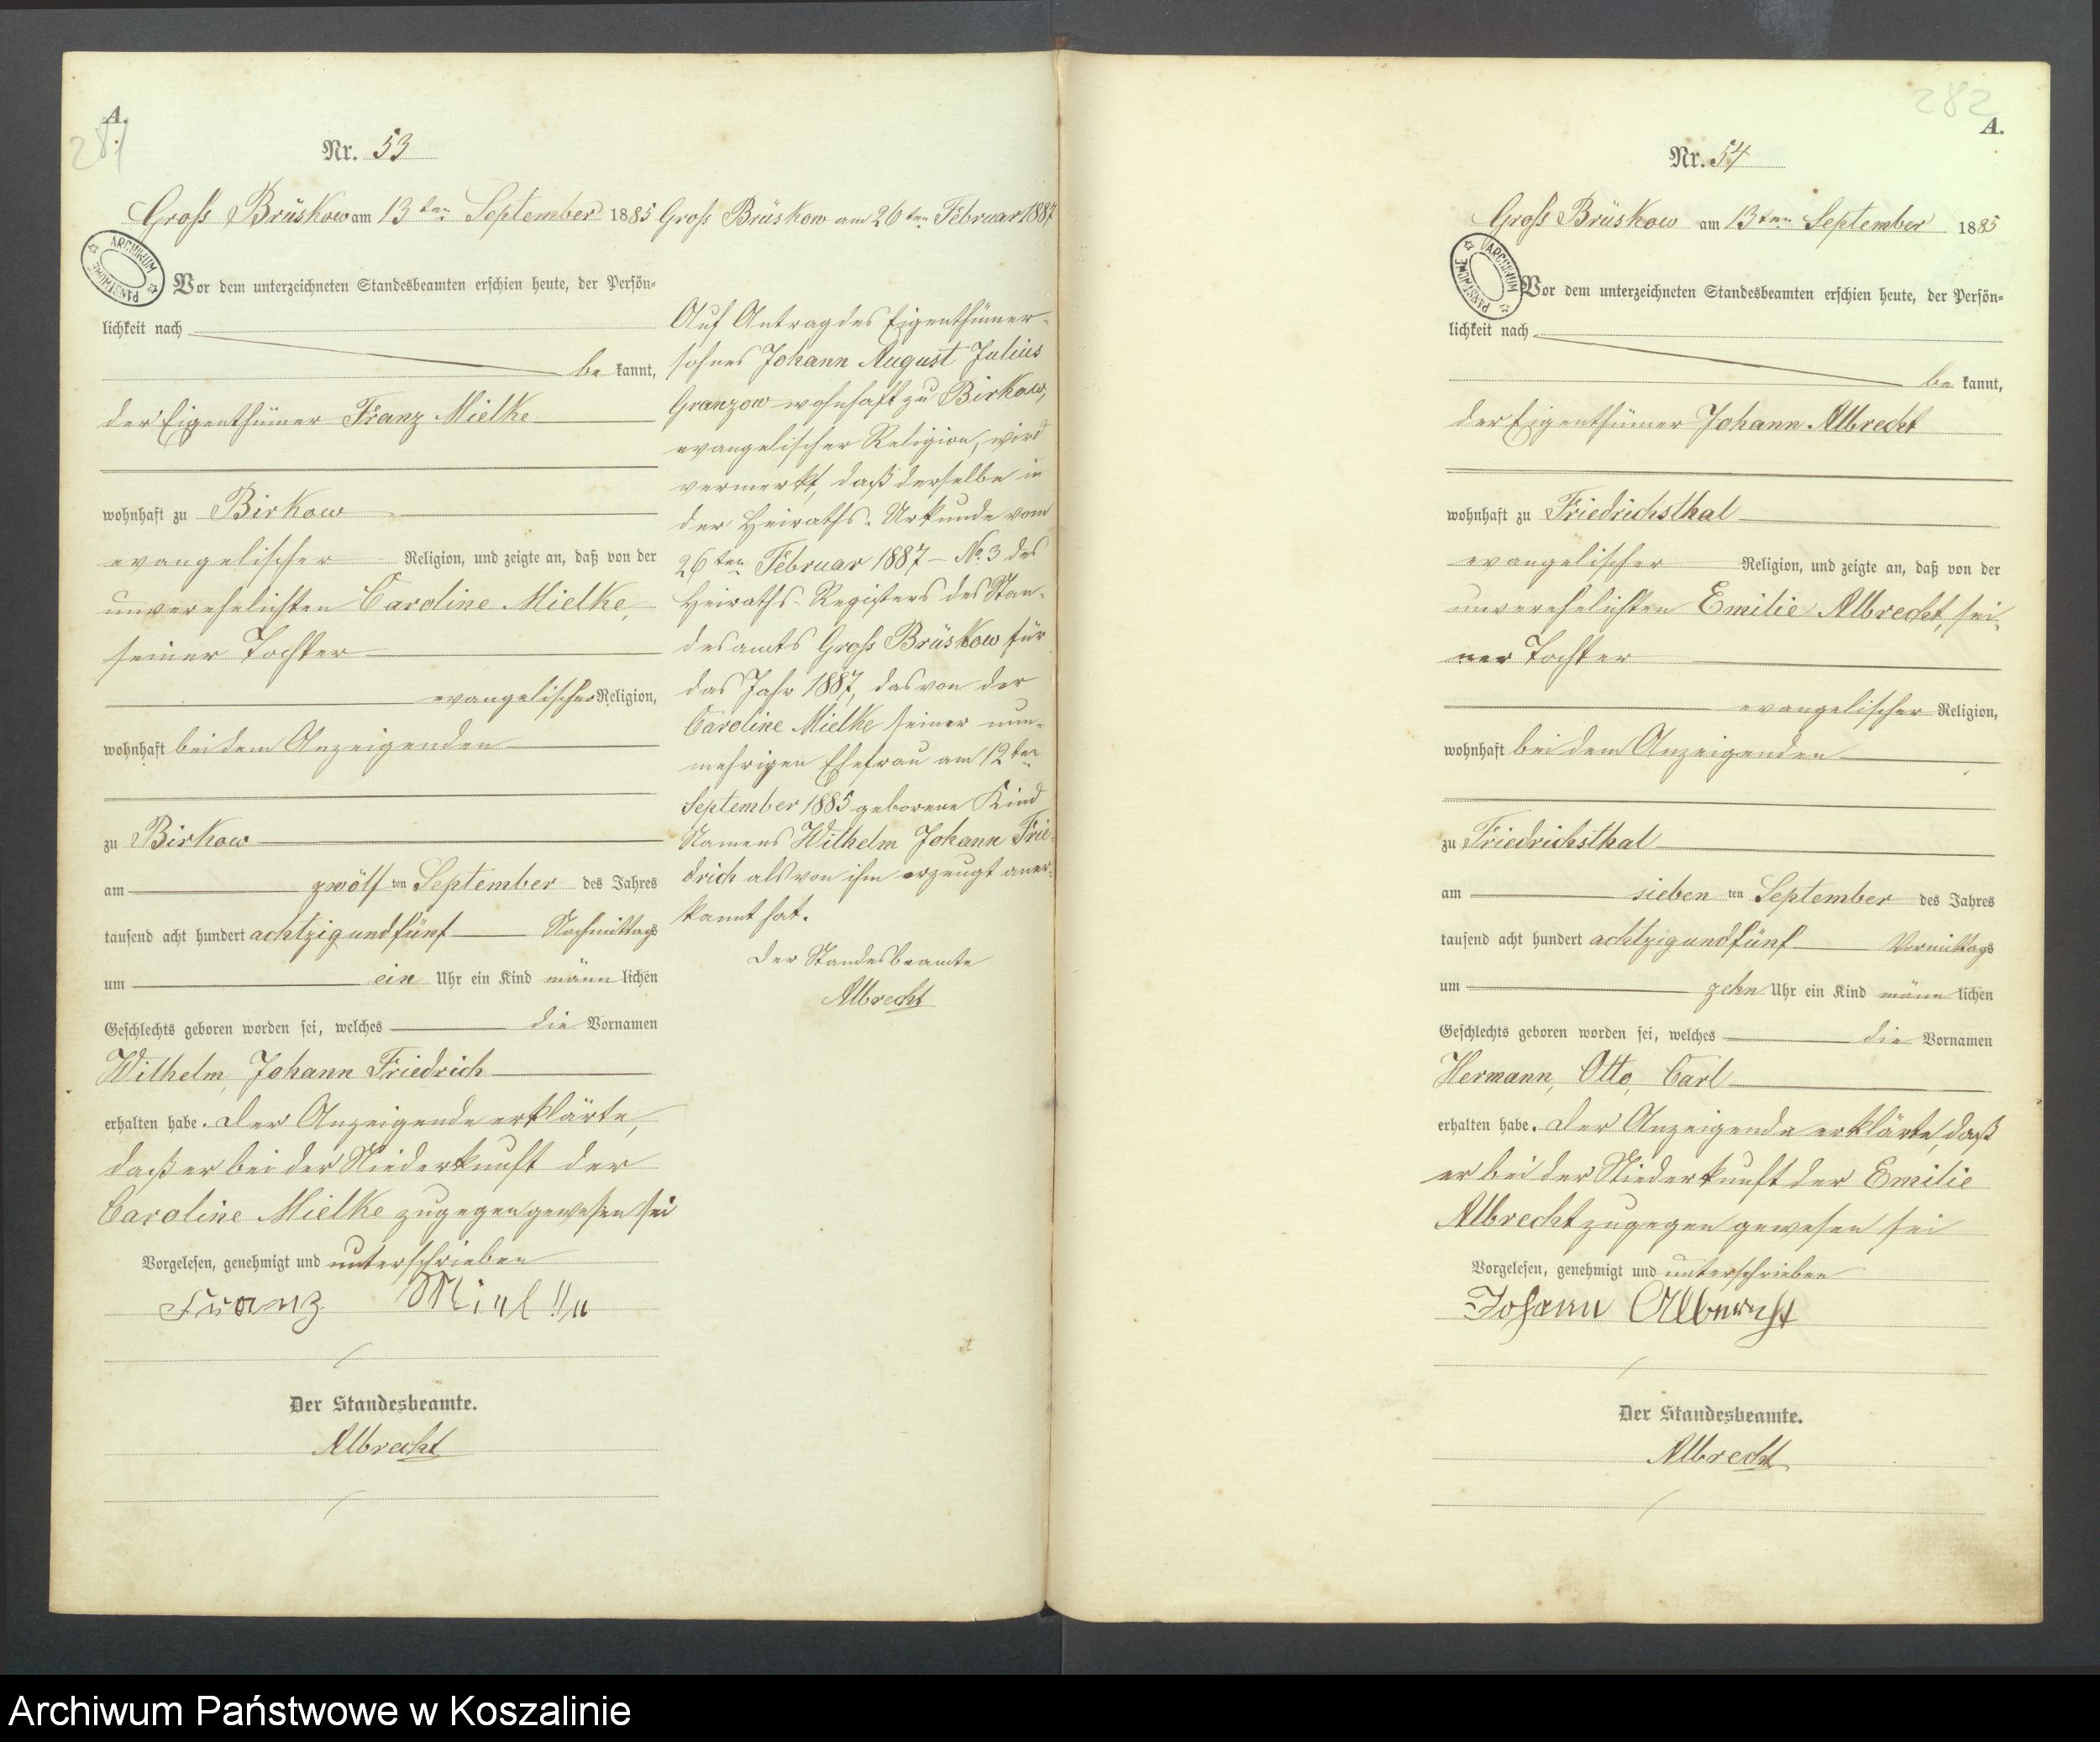 A.
281
Nr. 53
Groß Brüskow am 13ten September 1885
ARCHIWUM PAŃSTWOWE
Vor dem unterzeichneten Standesbeamten erschien heute, der Persön=
lichkeit nach
be kannt,
der Eigenthümer Franz Mielke
wohnhaft zu Birkow
evangelischer Religion, und zeigte an, daß von der
unverehelichten Caroline Mielke,
seiner Tochter
evangelischer Religion,
wohnhaft bei dem Anzeigenden
zu Birkow
am zwölf ten September des Jahres
tausend acht hundert achtzig und fünf Nachmittags
um ein Uhr ein Kind männ lichen
Geschlechts geboren worden sei, welches die Vornamen
Wilhelm, Johann Friedrich
erhalten habe. Der Anzeigende erklärte,
daß er bei der Niederkunft der
Caroline Mielke zugegen gewesen sei
Vorgelesen, genehmigt und unterschrieben
Franz Mielke
Der Standesbeamte.
Albrecht
Groß Brüskow am 26ten Februar 1887
Auf Antrag des Eigenthümer-
sohnes Johann August Julius
Granzow wohnhaft zu Birkow,
evangelischer Religion, wird
vermerkt, daß derselbe in
der Heiraths-Urkunde vom
26ten Februar 1887 – No. 3 des
Heiraths-Registers des Stan-
desamts Groß Brüskow für
das Jahr 1887, das von der
Caroline Mielke seiner nun-
mehrigen Ehefrau am 12ten
September 1885 geborene Kind
Namens Wilhelm Johann Frie-
drich als von ihm erzeugt aner-
kannt hat.
Der Standesbeamte
Albrecht
282
A.
Nr. 54
Groß Brüskow am 13ten September 1885
ARCHIWUM PAŃSTWOWE
Vor dem unterzeichneten Standesbeamten erschien heute, der Persön=
lichkeit nach
be kannt,
der Eigenthümer Johann Albrecht
wohnhaft zu Friedrichsthal
evangelischer Religion, und zeigte an, daß von der
unverehelichten Emilie Albrecht, sei-
ner Tochter
evangelischer Religion,
wohnhaft bei dem Anzeigenden
zu Friedrichsthal
am sieben ten September des Jahres
tausend acht hundert achtzig und fünf Vormittags
um zehn Uhr ein Kind männ lichen
Geschlechts geboren worden sei, welches die Vornamen
Hermann, Otto, Carl
erhalten habe. Der Anzeigende erklärte, daß
er bei der Niederkunft der Emilie
Albrecht zugegen gewesen sei
Vorgelesen, genehmigt und unterschrieben
Johann Albrecht
Der Standesbeamte.
Albrecht
Archiwum Państwowe w Koszalinie